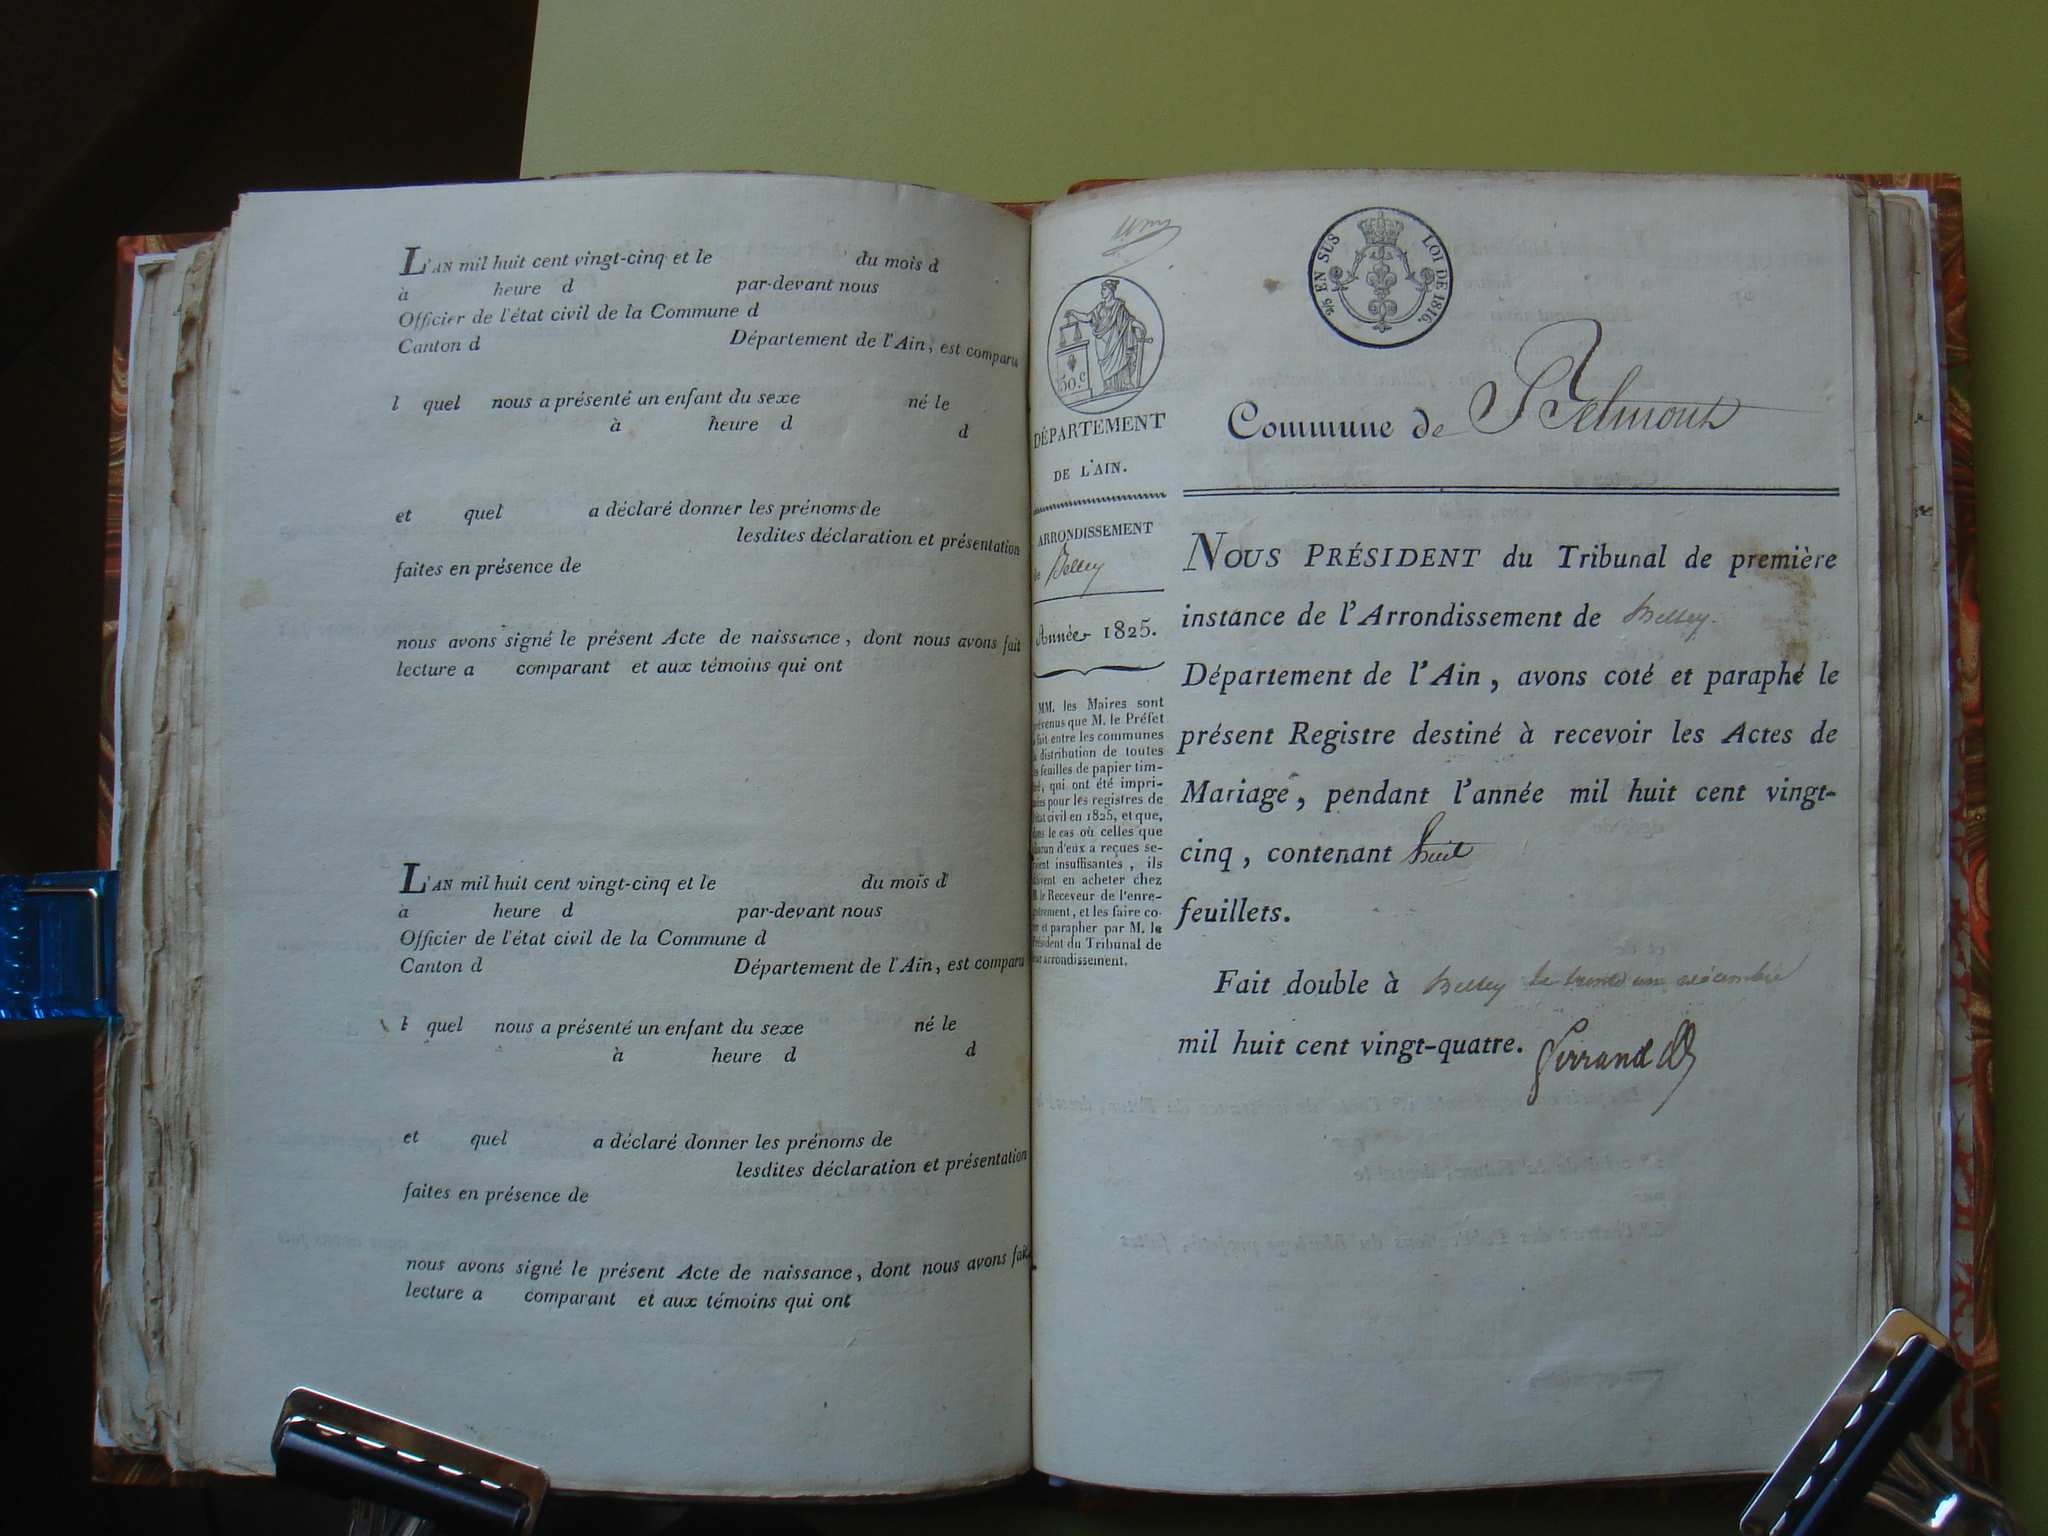 L'AN mil huit cent vingt-cinq et le du mois d
à heure d par-devant nous
Officier de l'état civil de la Commune d
Canton d Département de l'Ain, est comparu
l quel nous a présenté un enfant du sexe né le
à heure d d
et quel a déclaré donner les prénoms de
lesdites déclaration et présentation
faites en présence de
nous avons signé le présent Acte de naissance, dont nous avons fait
lecture a comparant et aux témoins qui ont
L'AN mil huit cent vingt-cinq et le du mois d
à heure d par-devant nous
Officier de l'état civil de la Commune d
Canton d Département de l'Ain, est comparu
l quel nous a présenté un enfant du sexe né le
à heure d d
et quel a déclaré donner les prénoms de
lesdites déclaration et présentation
faites en présence de
nous avons signé le présent Acte de naissance, dont nous avons fait
lecture a comparant et aux témoins qui ont
EN SUS LOI DE 1816.
50.c
DÉPARTEMENT
DE L'AIN.
ARRONDISSEMENT
de Belley
Année 1825.
MM. les Maires sont
que M. le Préfet
fait entre les communes
distribution de toutes
feuilles de papier tim-
qui ont été impri-
pour les registres de
civil en 1825, et que,
le cas où celles que
d'eux a reçues se-
insuffisantes, ils
en acheter chez
le Receveur de l'enre-
et les faire co-
et parapher par M. le
Président du Tribunal de
arrondissement.
Commune de Belmont
NOUS PRÉSIDENT du Tribunal de première
instance de l'Arrondissement de Belley.
Département de l'Ain, avons coté et paraphé le
présent Registre destiné à recevoir les Actes de
Mariage, pendant l'année mil huit cent vingt-
cinq, contenant huit
feuillets.
Fait double à Belley le trente un décembre
mil huit cent vingt-quatre. Ferrand